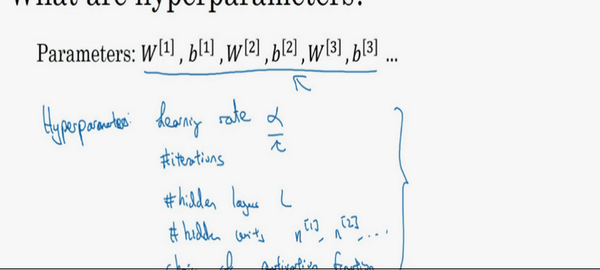 What are hyperparameters?
Parameters: W[1], b[1], W[2], b[2], W[3], b[3] ...
Hyperparameters: Learning rate α
#iterations
#hidden layers L
#hidden units n[1], n[2], ...
choice of activation function